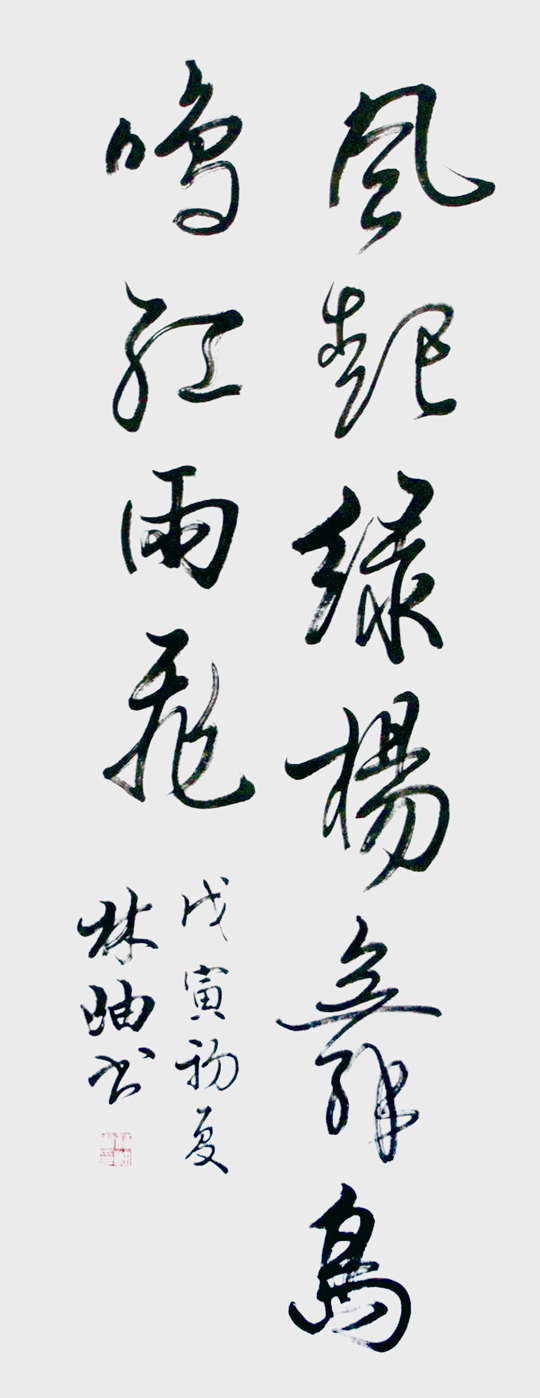 風起綠楊舞鳥
鳴紅雨飛
戊寅初夏
林岫书